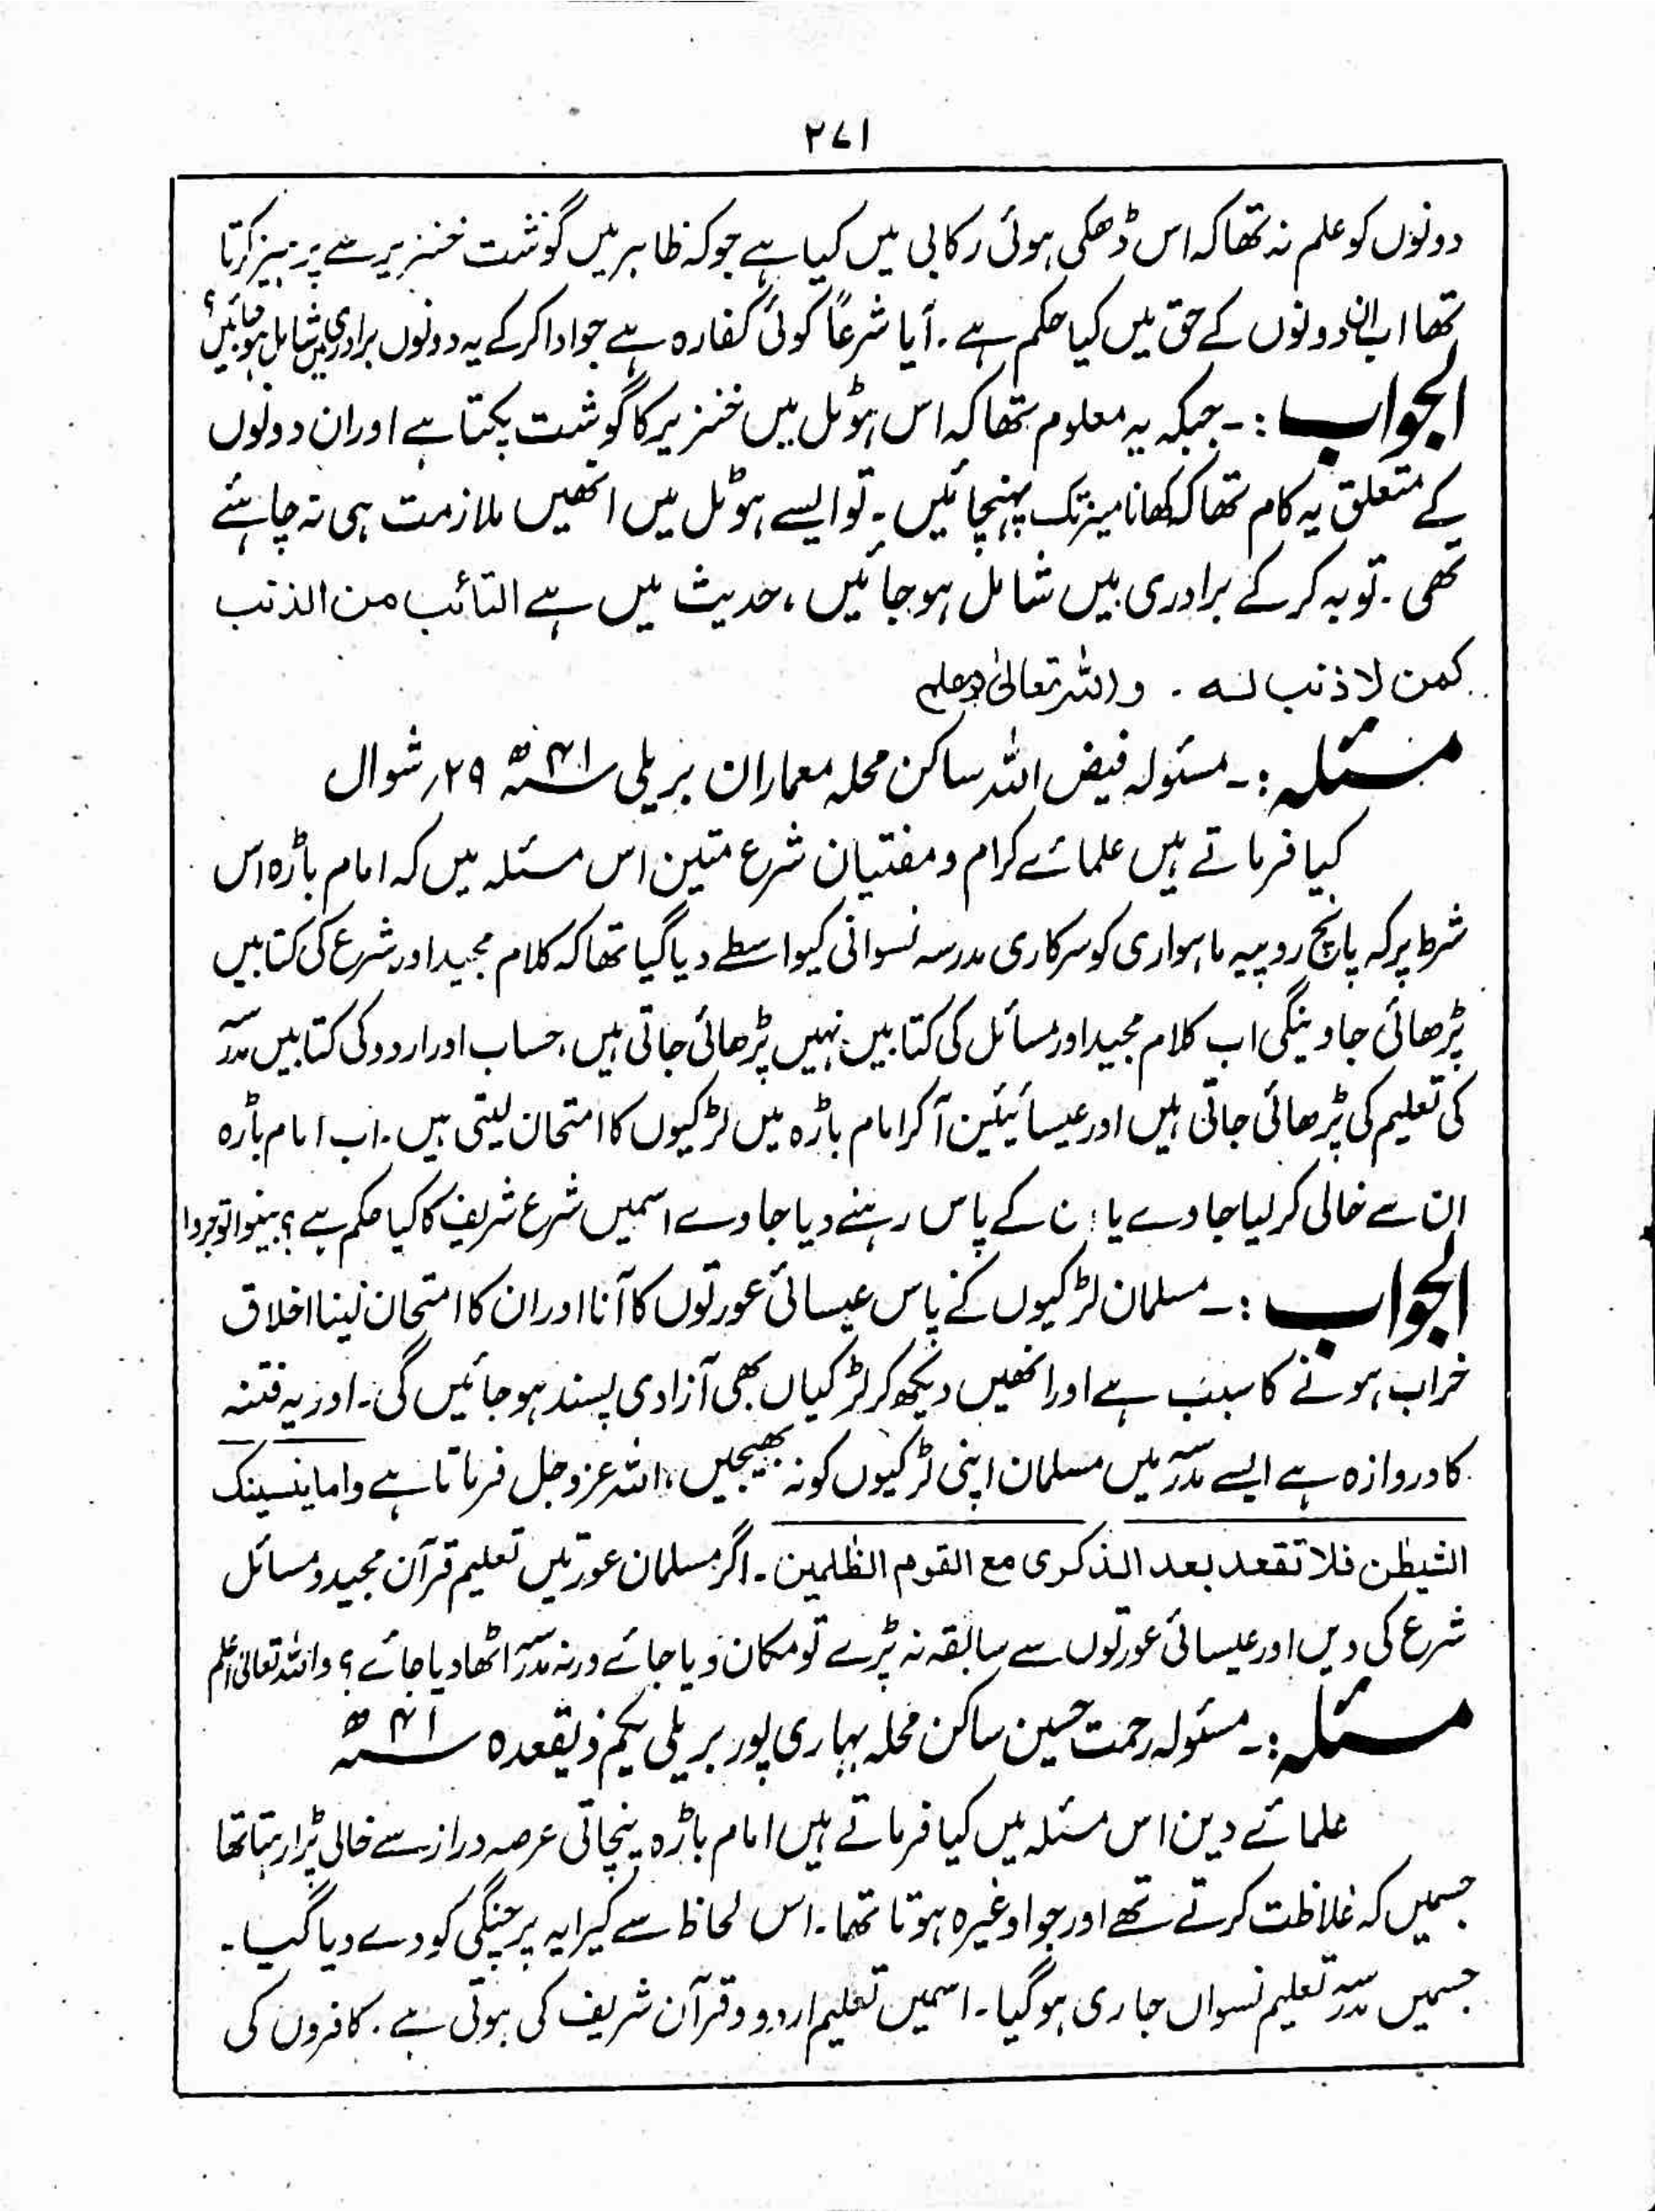 ۲۷۱
دونوں کو علم نہ تھا کہ اس ڈھکی ہوئی رکابی میں کیا ہے جو کہ ظاہر میں گوشت خنزیر سے پرہیز کرتا
تھا اب ان دونوں کے حق میں کیا حکم ہے ۔ آیا شرعاً کوئی کفارہ ہے جو ادا کر کے یہ دونوں برادری میں شامل ہو جائیں؟
الجواب :۔ جبکہ یہ معلوم تھا کہ اس ہوٹل میں خنزیر کا گوشت پکتا ہے اور ان دونوں
کے متعلق یہ کام تھا کہ کھانا میز تک پہنچائیں ۔ تو ایسے ہوٹل میں انھیں ملازمت ہی نہ چاہئے
تھی ۔ توبہ کر کے برادری میں شامل ہو جائیں ، حدیث میں ہے التائب من الذنب
کمن لا ذنب لہ ۔ واللہ تعالیٰ اعلم
مسئلہ :۔ مسئولہ فیض اللہ ساکن محلہ معماران بریلی ۴۱ھ ۲۹؍ شوال
کیا فرماتے ہیں علمائے کرام و مفتیان شرع متین اس مسئلہ میں کہ امام باڑہ اس
شرط پر کہ پانچ روپیہ ماہواری کو سرکاری مدرسہ نسوانی کیواسطے دیا گیا تھا کہ کلام مجید اور شرع کی کتابیں
پڑھائی جاوینگی اب کلام مجید اور مسائل کی کتابیں نہیں پڑھائی جاتی ہیں ، حساب اور اردو کی کتابیں مدرسہ
کی تعلیم کی پڑھائی جاتی ہیں اور عیسائینیں آ کر امام باڑہ میں لڑکیوں کا امتحان لیتی ہیں ۔ اب امام باڑہ
ان سے خالی کر لیا جاوے یا ان کے پاس رہنے دیا جاوے اسمیں شرع شریف کا کیا حکم ہے ؟ بینوا توجروا
الجواب :۔ مسلمان لڑکیوں کے پاس عیسائی عورتوں کا آنا اور ان کا امتحان لینا اخلاق
خراب ہونے کا سبب ہے اور انھیں دیکھ کر لڑکیاں بھی آزادی پسند ہو جائیں گی ۔ اور یہ فتنہ
کا دروازہ ہے ایسے مدرسہ میں مسلمان اپنی لڑکیوں کو نہ بھیجیں ، اللہ عزوجل فرماتا ہے واما ینسینک
الشیطٰن فلا تقعد بعد الذکری مع القوم الظٰلمین ۔ اگر مسلمان عورتیں تعلیم قرآن مجید و مسائل
شرع کی دیں اور عیسائی عورتوں سے سابقہ نہ پڑے تو مکان دیا جائے ورنہ مدرسہ اٹھا دیا جائے ؟ واللہ تعالیٰ اعلم
مسئلہ :۔ مسئولہ رحمت حسین ساکن محلہ بہاری پور بریلی یکم ذیقعدہ ۴۱ھ
علمائے دین اس مسئلہ میں کیا فرماتے ہیں امام باڑہ پنچاتی عرصہ دراز سے خالی پڑا رہتا تھا
جسمیں کہ غلاظت کرتے تھے اور جوا وغیرہ ہوتا تھا ۔ اس لحاظ سے کیرایہ پر چنگی کو دے دیا گیا ۔
جسمیں مدرسہ تعلیم نسواں جاری ہو گیا ۔ اسمیں تعلیم اردو و قرآن شریف کی ہوتی ہے ۔ کافروں کی